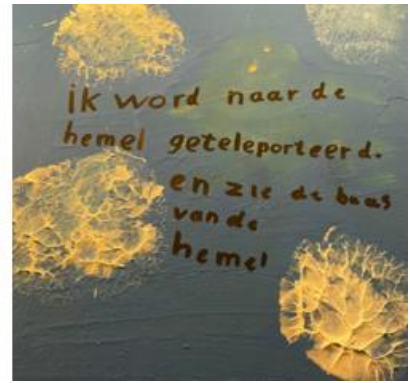 ik word naar de
hemel geteleporteerd.
en zie de baas
van de
hemel